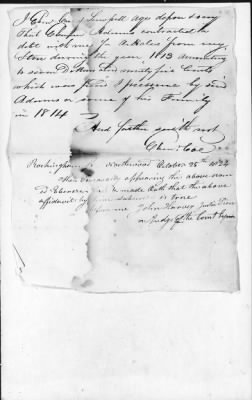 I Eben Coe of depose & say
That Adams contracted a
debt with me for Articles from my
Store during the year 1813 amounting
to seven Dollars and ninety five Cents
which was paid I presume by said
Adams or some of his Family
in 1814
And further saith not
Eben Coe
Rockingham Northwood October 25th 1824
Then personally appearing the above named
Ebenezer made Oath that the above
affidavit by him subscribed is true
before me John Harvey Justice
Judge of the Court